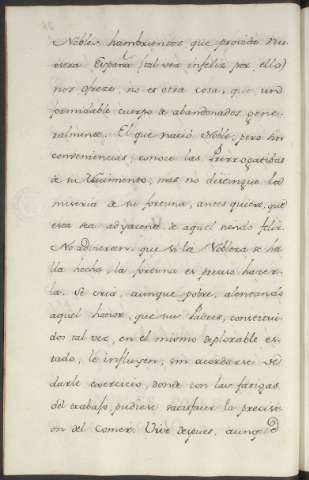 Nobles hambrientos que produce nu
estra España (tal vez infeliz por ello)
nos ofrece, no es otra cosa, que un
formidable cuerpo de abandonados gene
ralmente. El que nació Noble, pero sin
conveniencias, conoce las Prerrogatibas
de su Nacimiento, mas no distingue la
miseria de su fortuna, antes quiere, que
esta sea adyacente de aquel siendo feliz.
No advierten, que si la Nobleza se ha
lla hecha, la fortuna es preciso hacer
la. Se cria, aunque pobre, alentando
aquel honor, que sus Padres, constitui
dos tal vez, en el mismo deplorable es
tado, le influyen, sin acordarse de
darle exercicio, donde con las fatigas
del trabajo, pudiese satisfacer la precisi
on del comer. Vive despues, aunq.